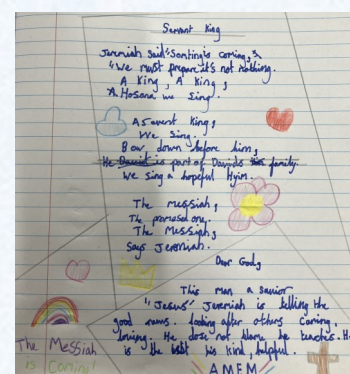 Servant King
Jeremiah said "Somting's coming,"
"We must prepare it's not nothing.
A King, A King,
A Hosana we Sing.
A Servant King,
We Sing.
Bow down before him,
He is part of Davids family.
We sing a hopeful Hyim.
The messiah,
The promised one.
The Messiah,
Says Jeremiah.
Dear God,
This man a savior
"Jesus" Jeremiah is telling the
good news. looking after others Caring,
loving. He dose not blame he teaches. He
is the his kind, helpful.
The Messiah
is Coming!
AMEM